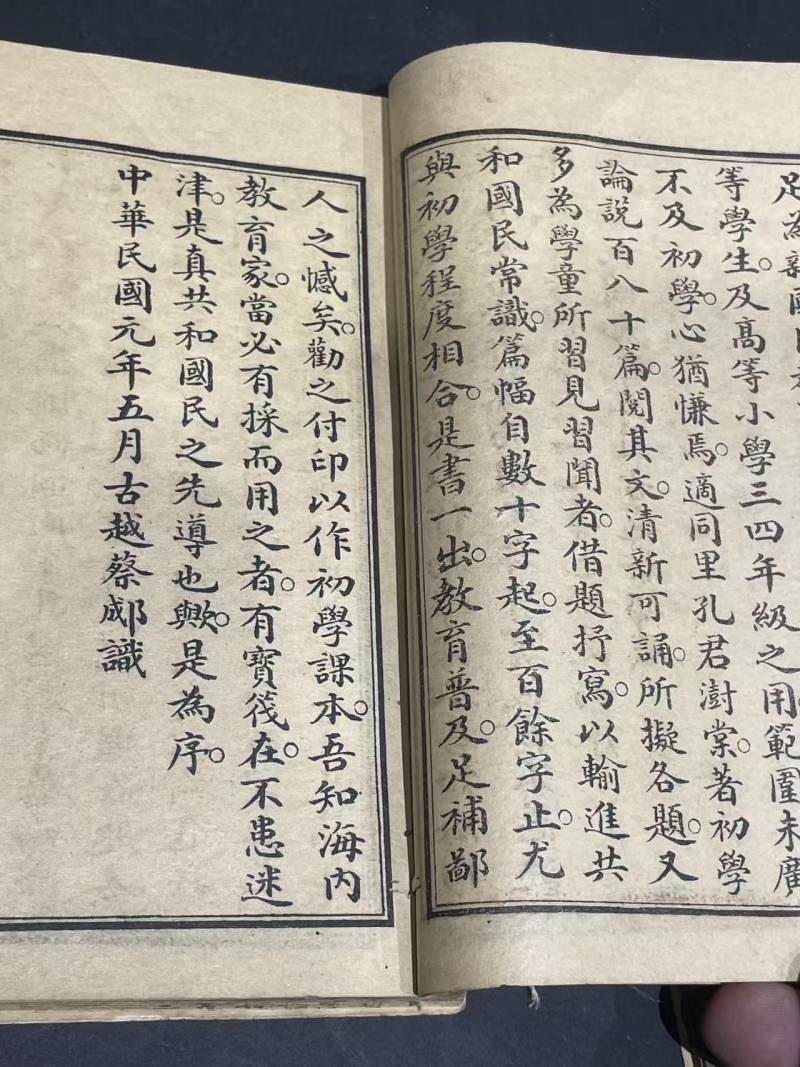 足為新國民
等學生。及高等小學三四年級之用範圍未廣
不及初學。心猶慊焉。適同里孔君澍棠。著初學
論說百八十篇。閱其文。清新可誦。所擬各題。又
多為學童所習見習聞者。借題抒寫。以輸進共
和國民常識。篇幅自數十字起。至百餘字止。尤
與初學程度相合。是書一出。教育普及。足補鄙
人之憾矣。勸之付印以作初學課本。吾知海內
教育家。當必有採而用之者。有寶筏在。不患迷
津。是真共和國民之先導也歟。是為序。
中華民國元年五月古越蔡郕識